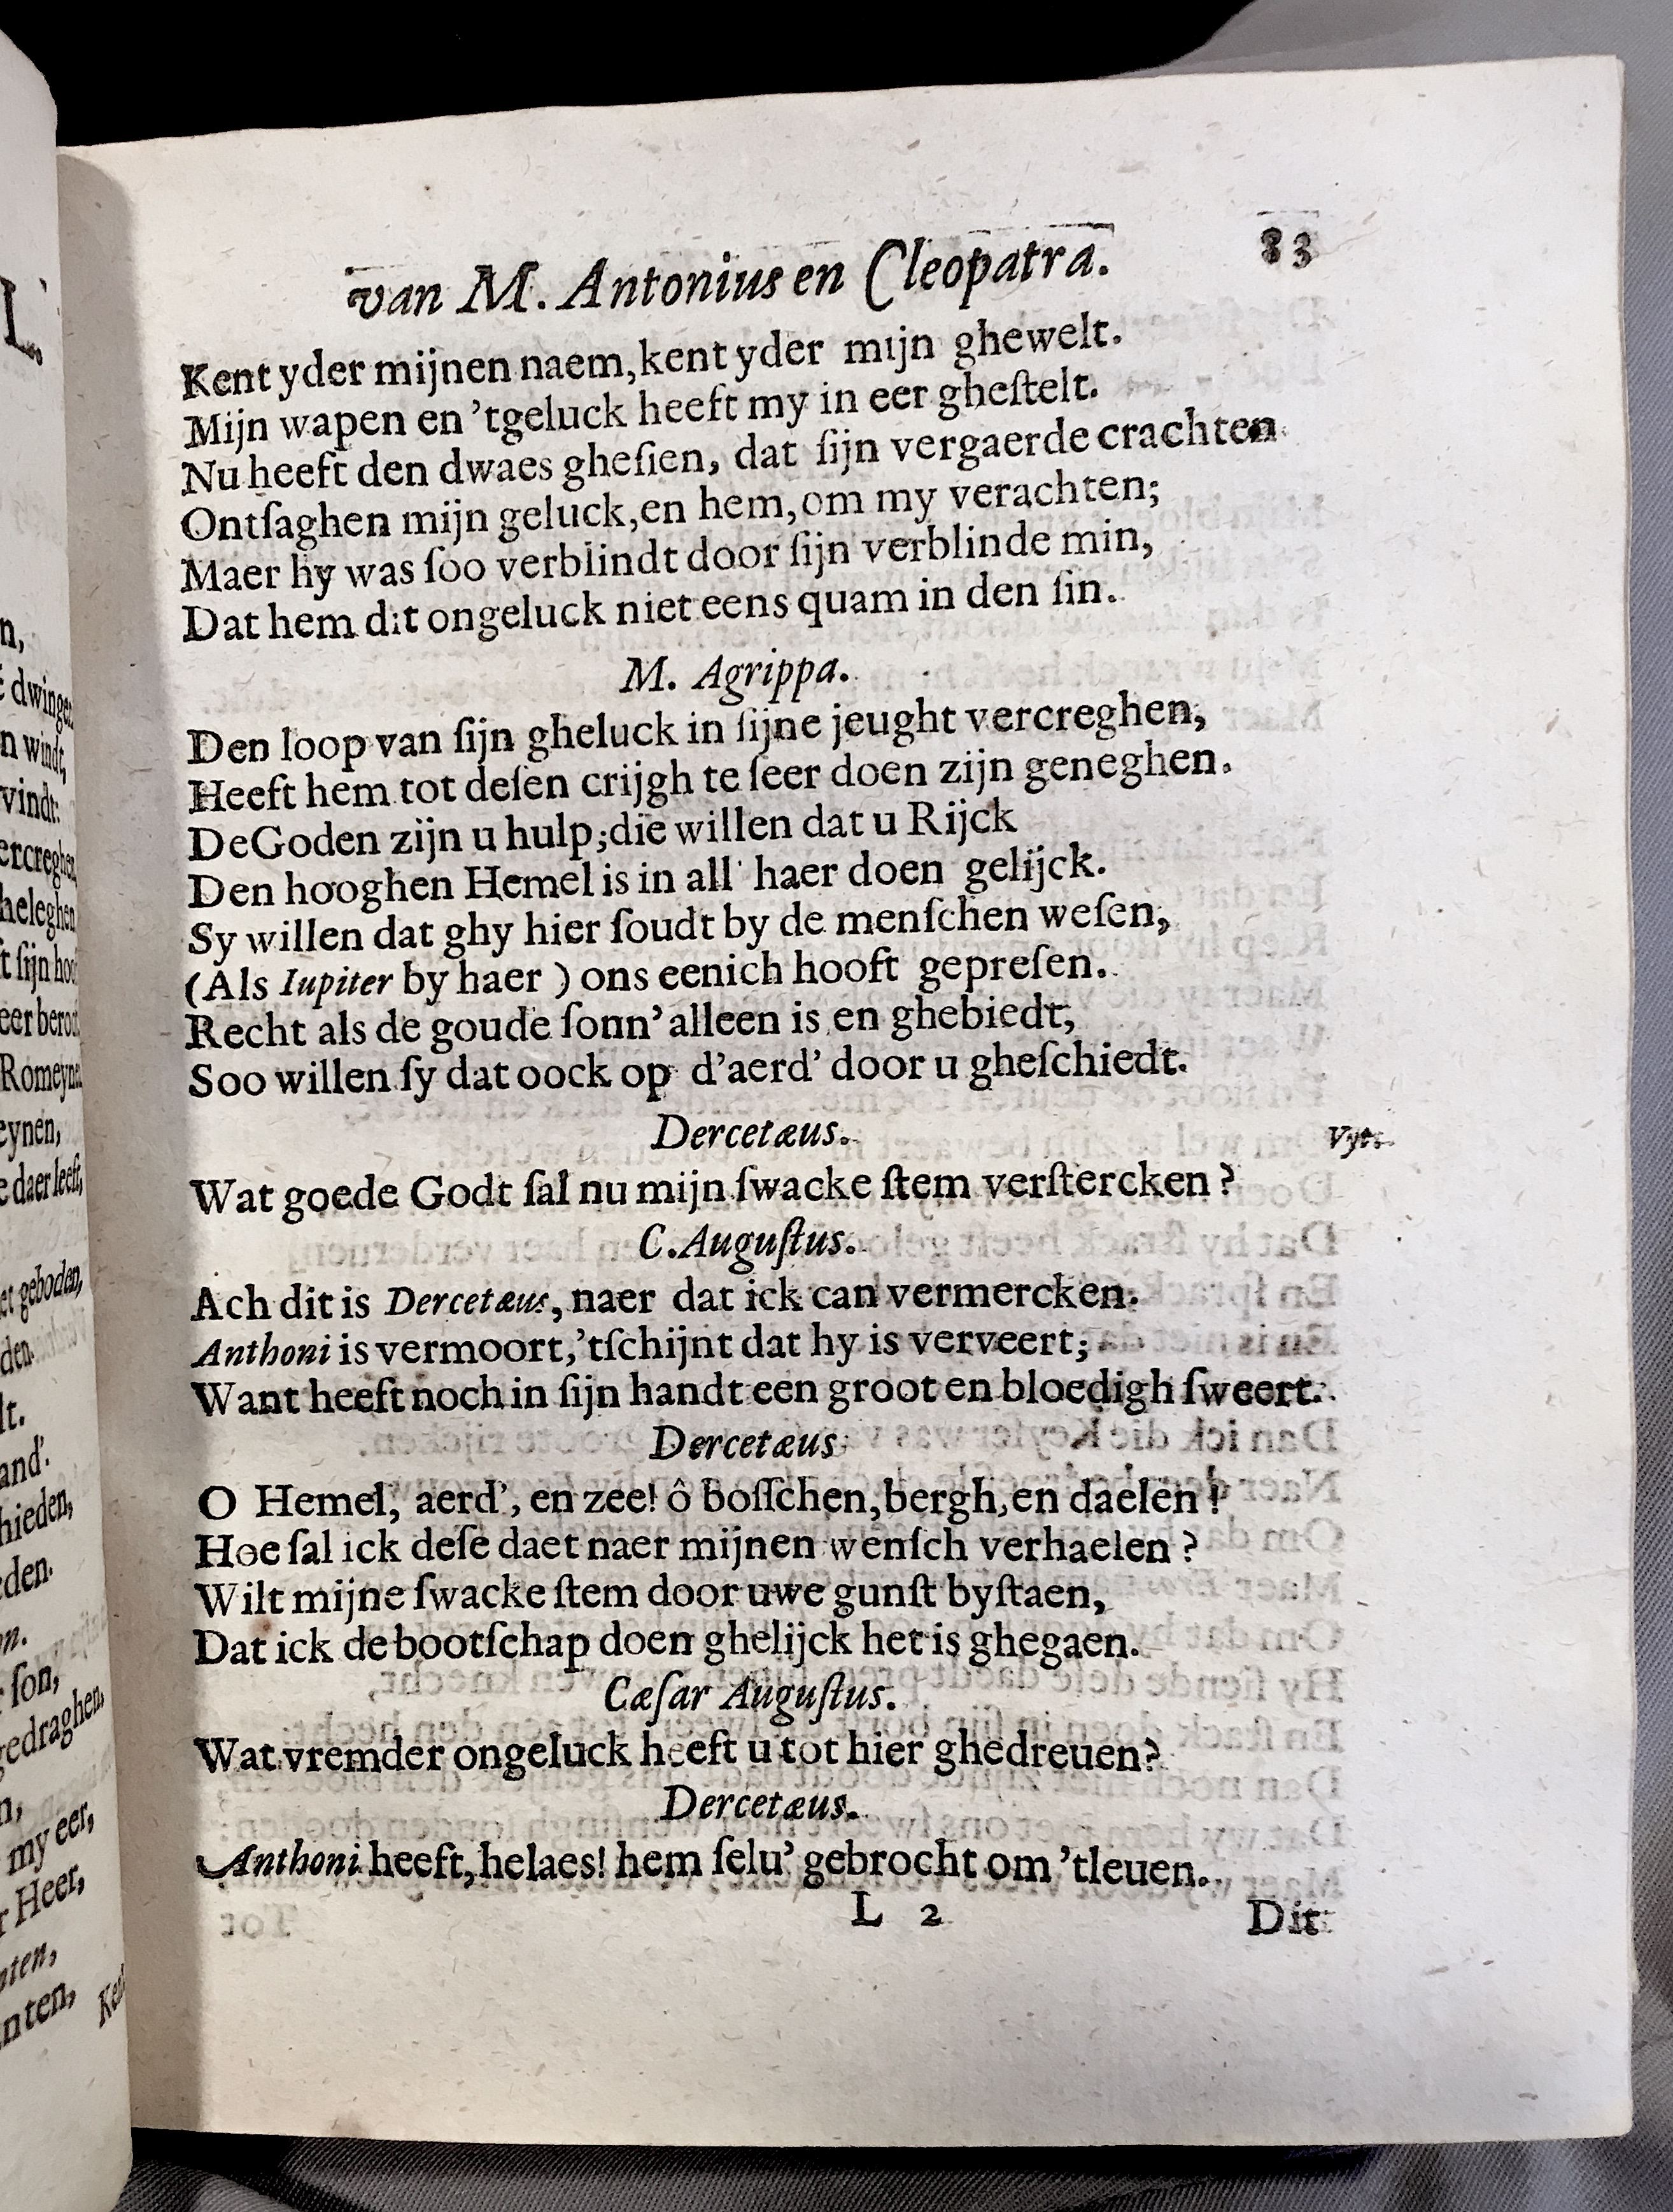 van M. Antonius en Cleopatra. 83
Kent yder mijnen naem, kent yder mijn ghewelt.
Mijn wapen en 'tgeluck heeft my in eer gheſtelt.
Nu heeft den dwaes gheſien, dat ſijn vergaerde crachten
Ontſaghen mijn geluck, en hem, om my verachten;
Maer hy was ſoo verblindt door ſijn verblinde min,
Dat hem dit ongeluck niet eens quam in den ſin.
M. Agrippa.
Den loop van ſijn gheluck in ſijne jeught vercreghen,
Heeft hem tot deſen crijgh te ſeer doen zijn geneghen.
De Goden zijn u hulp; die willen dat u Rijck
Den hooghen Hemel is in all' haer doen gelijck.
Sy willen dat ghy hier ſoudt by de menſchen weſen,
(Als Iupiter by haer) ons eenich hooft gepreſen.
Recht als de goude ſonn' alleen is en ghebiedt,
Soo willen ſy dat oock op d'aerd' door u gheſchiedt.
Dercetæus. Vyt.
Wat goede Godt ſal nu mijn ſwacke ſtem verſtercken?
C. Auguſtus.
Ach dit is Dercetæus, naer dat ick can vermercken.
Anthoni is vermoort, 'tſchijnt dat hy is verveert;
Want heeft noch in ſijn handt een groot en bloedigh ſweert.
Dercetæus.
O Hemel, aerd', en zee! ô boſſchen, bergh, en daelen!
Hoe ſal ick deſe daet naer mijnen wenſch verhaelen?
Wilt mijne ſwacke ſtem door uwe gunſt byſtaen,
Dat ick de bootſchap doen ghelijck het is ghegaen.
Cæſar Auguſtus.
Wat vremder ongeluck heeft u tot hier ghedreuen?
Dercetæus.
Anthoni heeft, helaes! hem ſelu' gebrocht om 'tleuen.
L 2 Dit